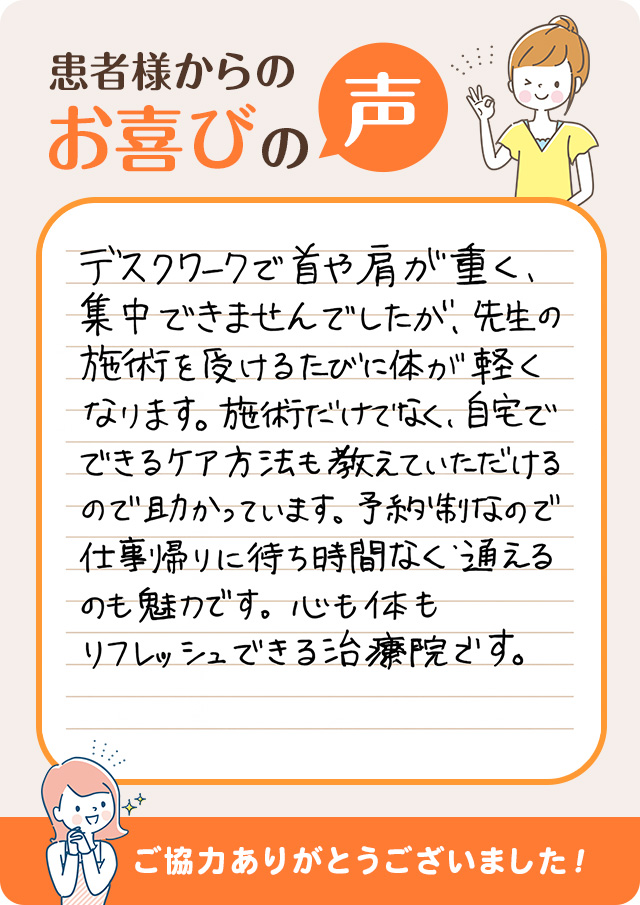 患者様からの
お喜びの声
デスクワークで首や肩が重く、
集中できませんでしたが、先生の
施術を受けるたびに体が軽く
なります。施術だけでなく、自宅で
できるケア方法も教えていただける
ので助かっています。予約制なので
仕事帰りに待ち時間なく通える
のも魅力です。心も体も
リフレッシュできる治療院です。
ご協力ありがとうございました!